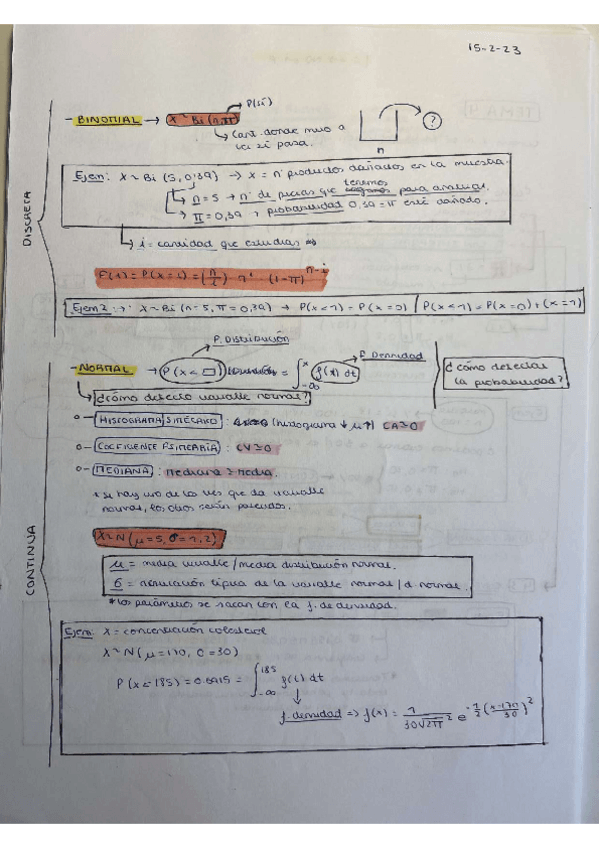 15-2-23
- BINOMIAL → X ~ Bi (n, π) → P(sí)
→ Cant. donde miro a
ver si pasa.
?
n
DISCRETA
Ejem: X ~ Bi (5, 0'39) → X = nº productos dañados en la muestra.
→ n = 5 → nº de piezas que tenemos para analizar.
→ π = 0,39 → probabilidad 0,39 = π esté dañado.
→ i = cantidad que estudias
F(i) = P(x = i) = (n i) · πⁱ · (1-π)ⁿ⁻ⁱ
Ejem 2: X ~ Bi (n=5, π=0,39) → P(x<1) = P(x=0) / P(x≤1) = P(x=0) + (x=1)
P. Distribución
- NORMAL → P(x < □) = ∫ f(x) dt
x
-∞
f. Densidad
¿cómo detectas
la probabilidad?
→ ¿cómo detecto variable normal?
HISTOGRAMA SIMÉTRICO : (histograma ↓ μ ↑) CA≃0
COEFICENTE ASIMETRÍA : CV≃0
MEDIANA : mediana ≃ media.
* si hay uno de los tres que da variable
normal, los otros serán parecidos.
CONTINUA
X~N(μ=5, σ=1,2)
μ = media variable / media distribución normal.
σ = desviación típica de la variable normal / d. normal.
* los parámetros se sacan con la f. de densidad.
Ejem. X = concentración colesterol
X~N(μ=170, σ=30)
P(x ≤ 185) = 0.6915 = ∫ f(t) dt
185
-∞
f. densidad => f(x) = 1 / 30√2π² e^-1/2 (x-170/30)²